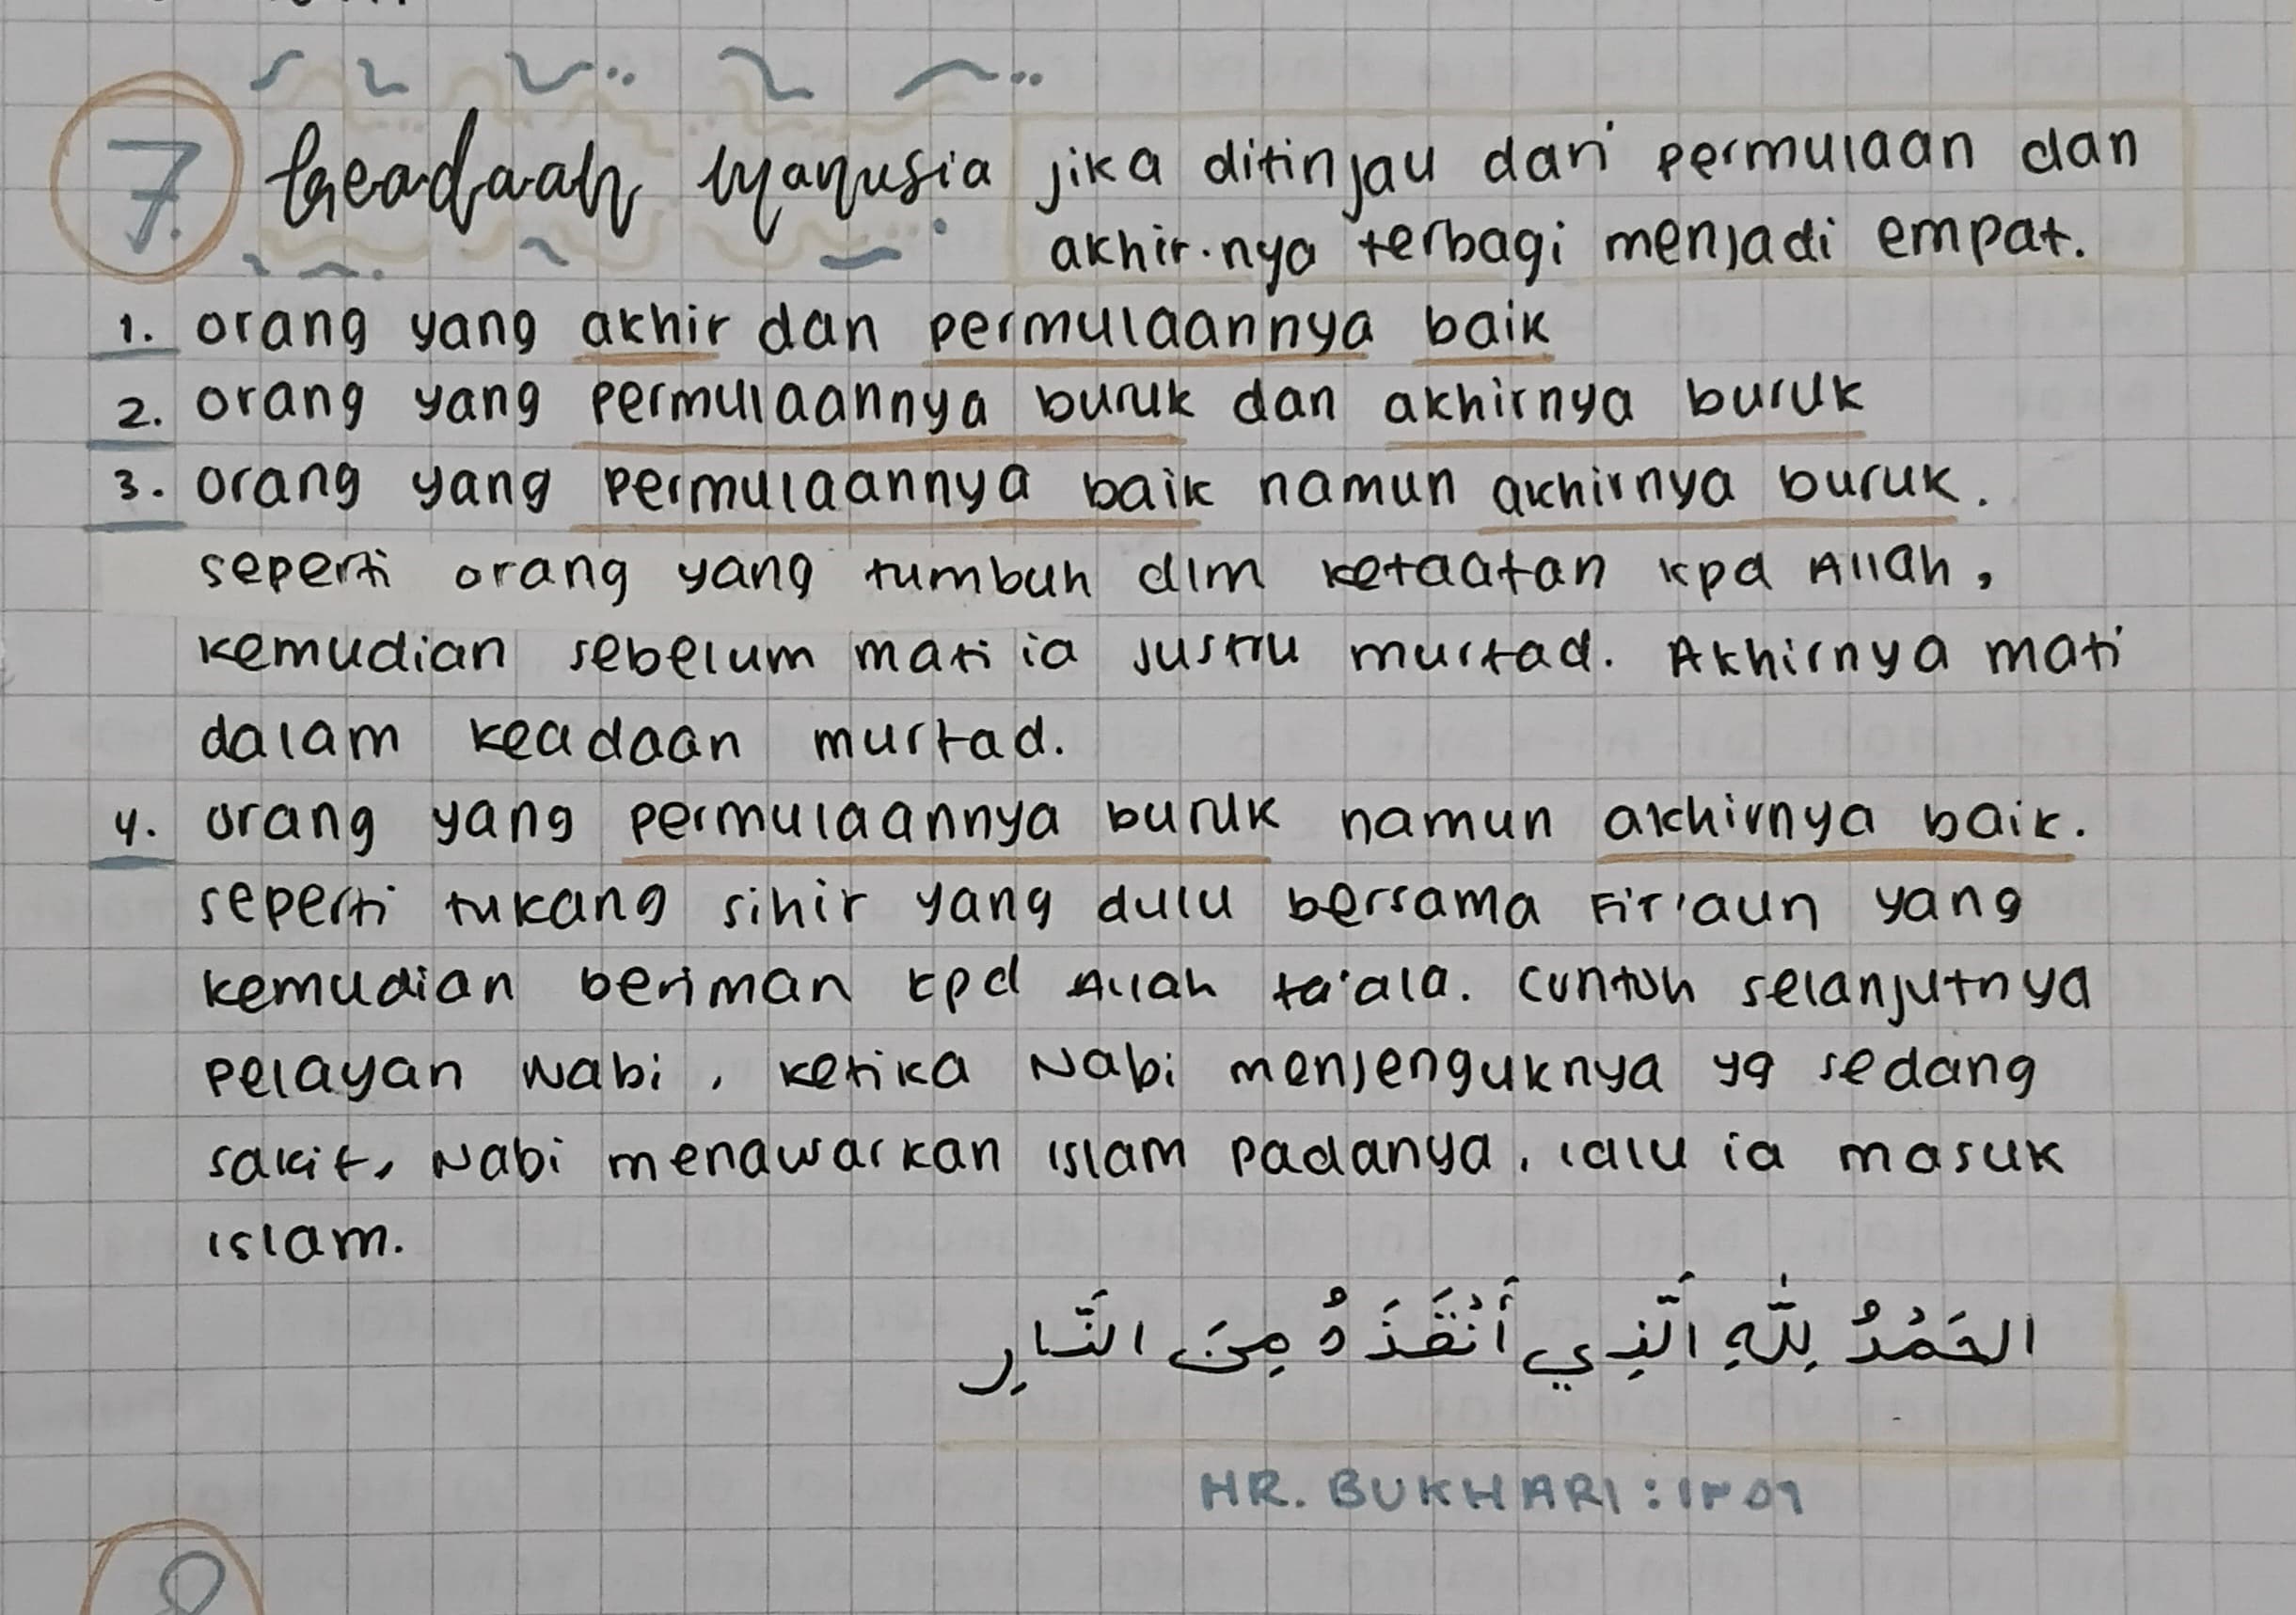 7. Keadaan Manusia jika ditinjau dari permulaan dan
akhir.nya terbagi menjadi empat.
1. orang yang akhir dan permulaannya baik
2. orang yang permulaannya buruk dan akhirnya buruk
3. orang yang permulaannya baik namun akhirnya buruk.
seperti orang yang tumbuh dlm ketaatan kpd Allah,
kemudian sebelum mati ia justru murtad. Akhirnya mati
dalam keadaan murtad.
4. orang yang permulaannya buruk namun akhirnya baik.
seperti tukang sihir yang dulu bersama Fir'aun yang
kemudian beriman kpd Allah ta'ala. contoh selanjutnya
pelayan Nabi, ketika Nabi menjenguknya yg sedang
sakit, Nabi menawarkan islam padanya, lalu ia masuk
islam.
الحَمْدُ لِلَّهِ الَّذِي أَنْقَذَهُ مِنَ النَّارِ
HR. BUKHARI:
8